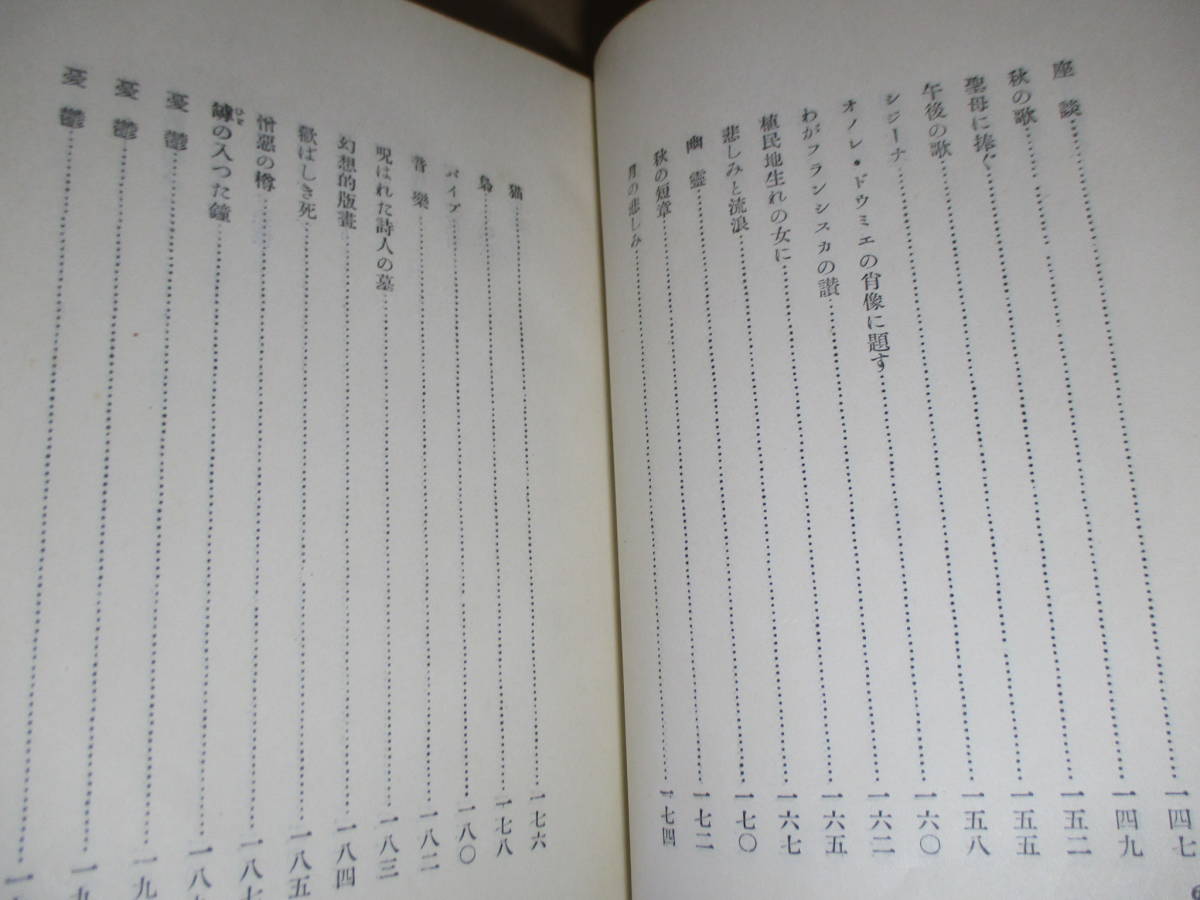 座談 一四七
秋の歌 一四九
聖母に捧ぐ 一五二
午後の歌 一五五
シジーナ 一五八
オノレ・ドウミエの肖像に題す 一六〇
わがフランシスカの讃 一六二
植民地生れの女に 一六五
悲しみと流浪 一六七
幽靈 一七〇
秋の短章 一七二
月の悲しみ 一七四
猫 一七六
梟 一七八
パイプ 一八〇
音樂 一八二
呪はれた詩人の墓 一八三
幻想的版畫 一八四
歡ばしき死 一八五
憎惡の樽 一八七
罅の入つた鐘 一八
ひゞ
憂鬱 一九
憂鬱 一九
憂鬱 一